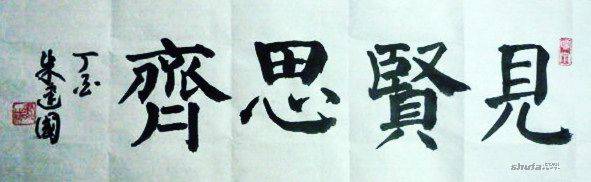 見賢思齊
丁亥
朱建國
shufa